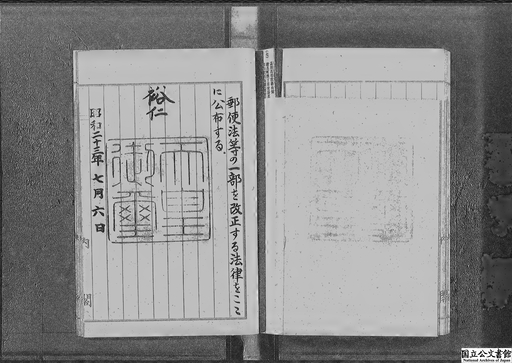 郵便法等の一部を改正する法律をここ
に公布する。
裕仁
天皇
御璽
昭和二十三年 七月 六日
内
閣
国立公文書館
National Archives of Japan